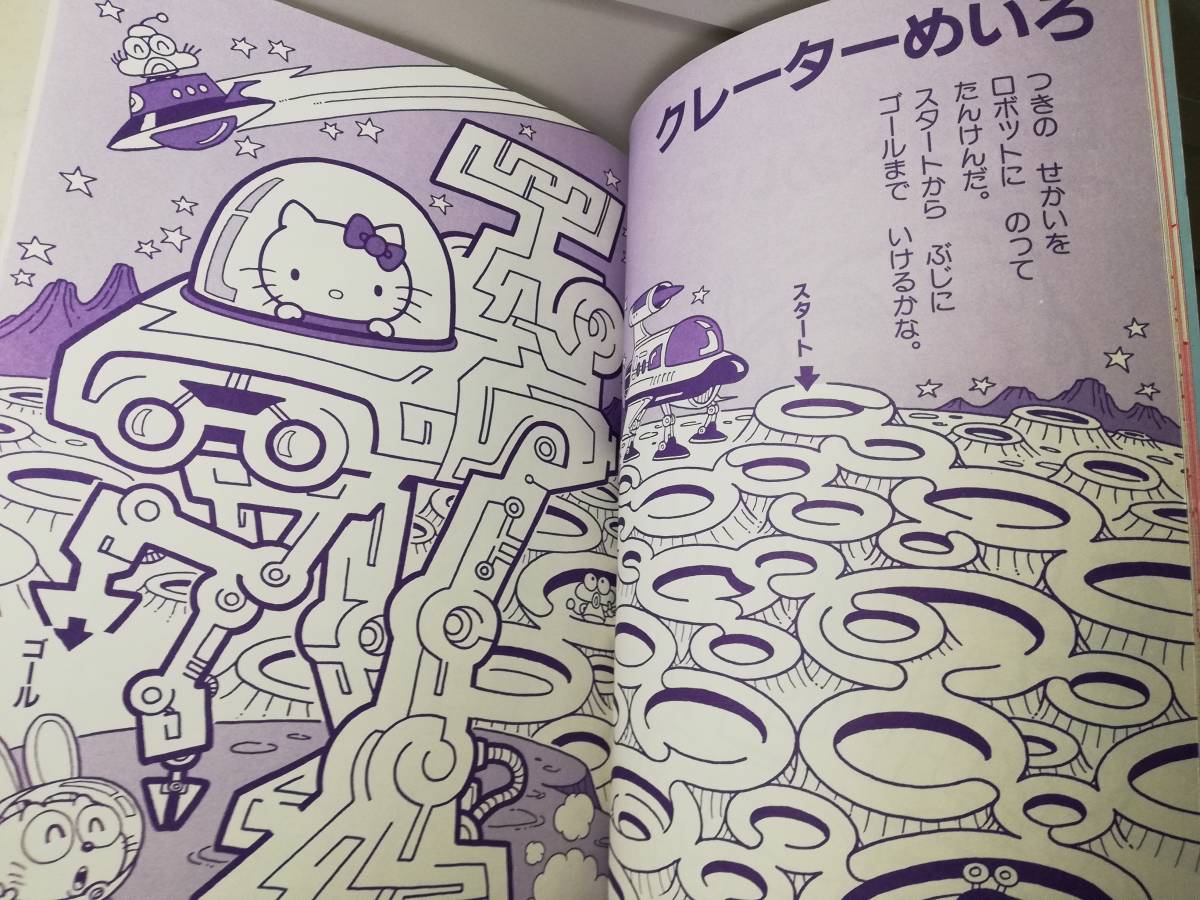 クレーターめいろ
つきの せかいを
ロボットに のって
たんけんだ。
スタートから ぶじに
ゴールまで いけるかな。
スタート
ゴール